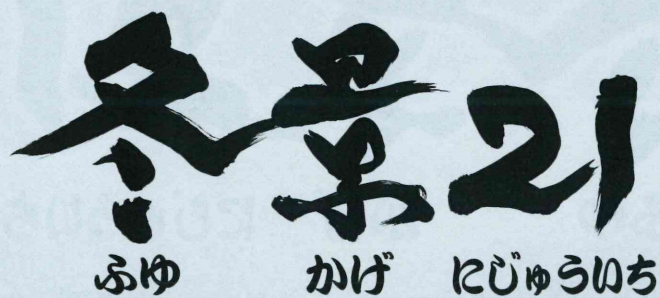 冬景21
ふゆ かげ にじゅういち